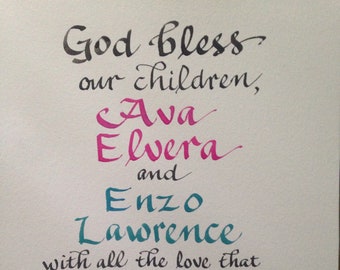 God bless
our children,
Ava
Elvera
and
Enzo
Lawrence
with all the love that